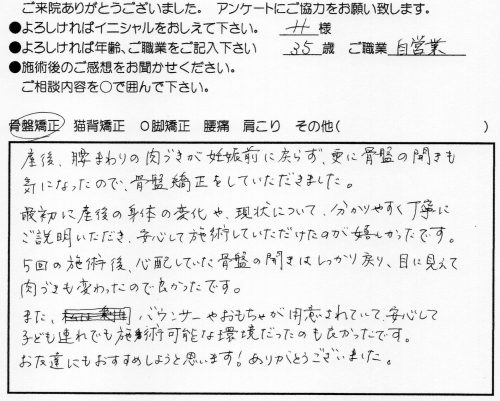 ご来院ありがとうございました。 アンケートにご協力をお願い致します。
●よろしければイニシャルをおしえて下さい。 H 様
●よろしければ年齢、ご職業をご記入下さい 35 歳 ご職業 自営業
●施術後のご感想をお聞かせください。
ご相談内容を○で囲んで下さい。
骨盤矯正 猫背矯正 O脚矯正 腰痛 肩こり その他( )
産後、腰まわりの肉づきが妊娠前に戻らず、更に骨盤の開きも
気になったので、骨盤矯正をしていただきました。
最初に産後の身体の変化や、現状について、分かりやすく丁寧に
ご説明いただき、安心して施術していただけたのが嬉しかったです。
5回の施術後、心配していた骨盤の開きはしっかり戻り、目に見えて
肉づきも変わったので良かったです。
また、バウンサーやおもちゃが用意されていて、安心して
子ども連れでも施術可能な環境だったのも良かったです。
お友達にもおすすめしようと思います! ありがとうございました。